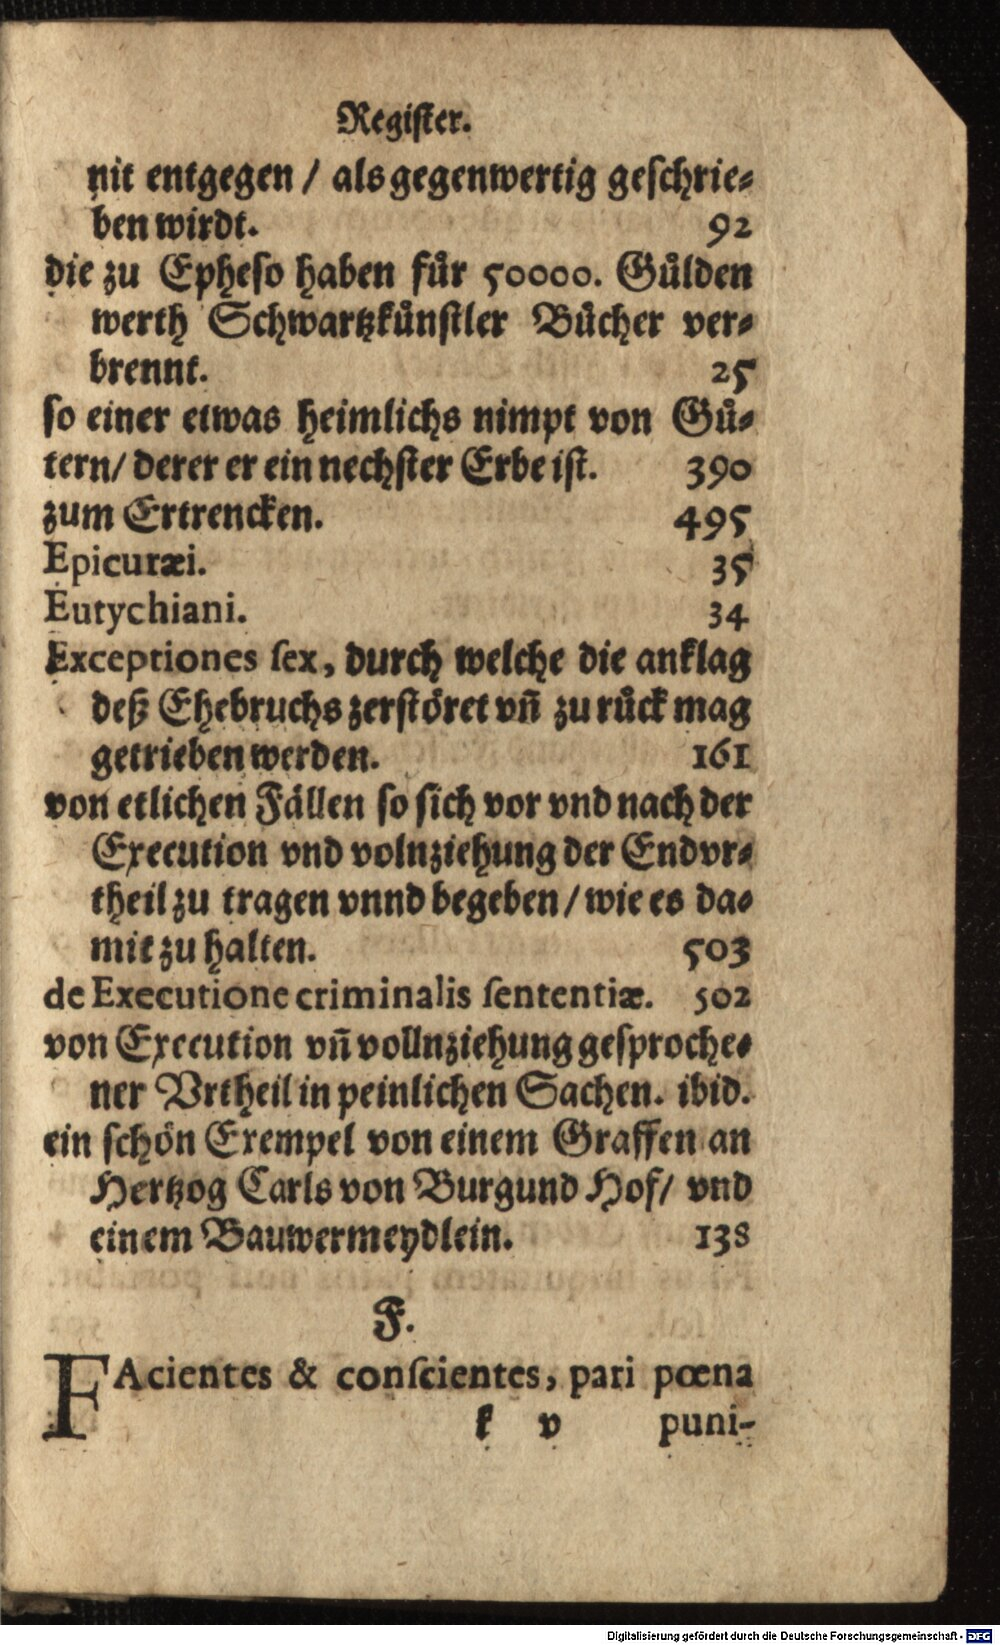 Regiſter.
nit entgegen / als gegenwertig geſchrie⸗
ben wirdt. 92
die zu Epheſo haben fuͤr 50000. Guͤlden
werth Schwartzkuͤnſtler Buͤcher ver⸗
brennt. 25
ſo einer etwas heimlichs nimpt von Guͤ⸗
tern/ derer er ein nechſter Erbe iſt. 390
zum Ertrencken. 495
Epicuræi. 35
Eutychiani. 34
Exceptiones ſex, durch welche die anklag
deß Ehebruchs zerſtoͤret vn̄ zu ruͤck mag
getrieben werden. 161
von etlichen Faͤllen ſo ſich vor vnd nach der
Execution vnd volnziehung der Endvr⸗
theil zu tragen vnnd begeben / wie es da⸗
mit zu halten. 503
de Executione criminalis ſententiæ. 502
von Execution vn̄ vollnziehung geſproche⸗
ner Vrtheil in peinlichen Sachen. ibid.
ein ſchoͤn Exempel von einem Graffen an
Hertzog Carls von Burgund Hof/ vnd
einem Bauwermeydlein. 138
F.
FAcientes & conſcientes, pari pœna
k v puni-
Digitalisierung gefördert durch die Deutsche Forschungsgemeinschaft - DFG